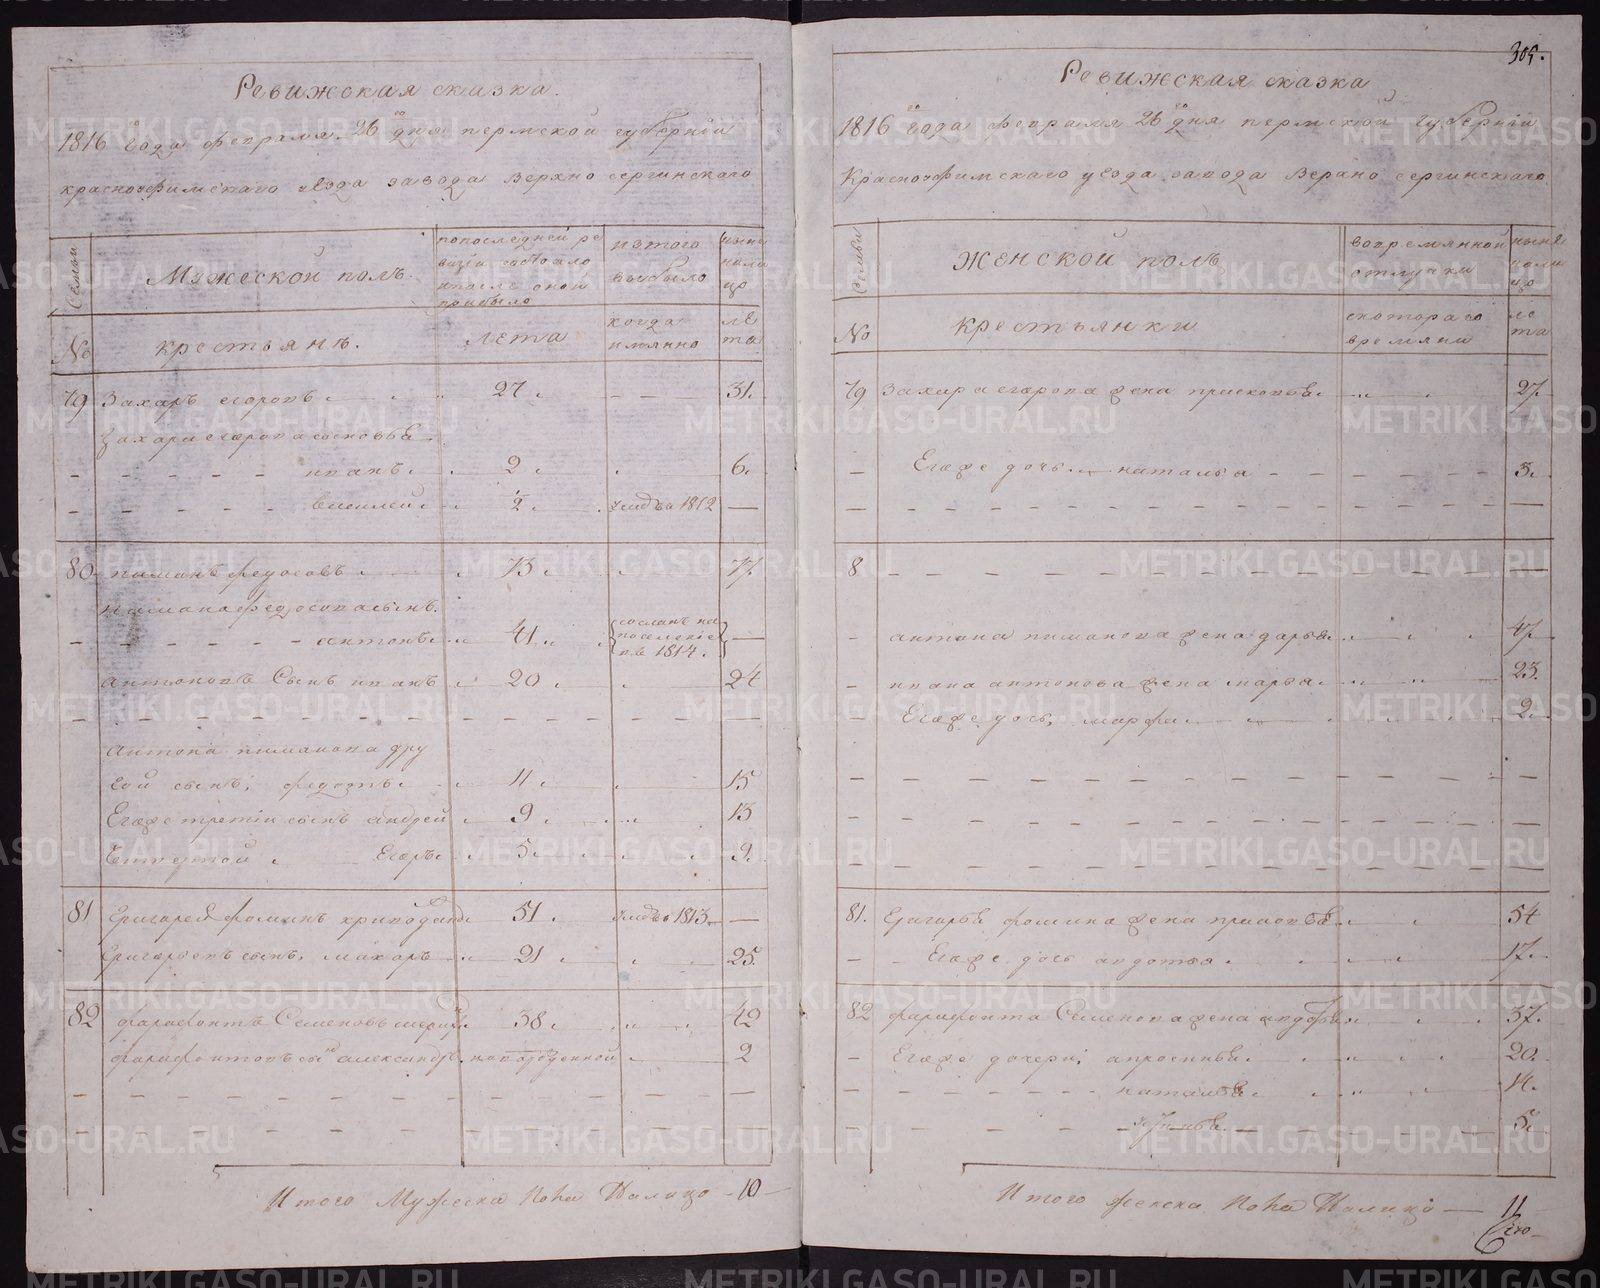 Ревижская сказка.
1816 го года февраля 26 го дня пермской губернiи
красноуфимскаго уезда завода Верхно сергинскаго
Семьи
Мужеской полъ.
попоследней ре
визiи состояло
ипосле оной
прибыло
изтого
выбыло
ныне
нали
цо
№
крестьянъ.
лета
когда
имянно
ле
та
79 Захаръ егоровъ 27. 31.
Захара егарова сыновья
иванъ. 2. 6.
василей 1/2. умеръ в 1812 —
80 пиманъ федосовъ 73. 77.
пимана федосова сынъ.
антонъ 41. сосланъ на
поселенiе
въ 1814. —
антоновъ Сынъ иванъ 20 24
антона пиманова дру
гой сынъ, федотъ 11. 15
Егоже третiй сынъ андрей 9. 13
Четвертой Егоръ 5. 9.
81 Григорей фоминъ 51. умеръ в 1813. —
Григорьевъ сынъ, макаръ 21 25.
82 фарафонтъ Семеновъ 38. 42
фарафонтовъ сынъ александръ новорожденной 2
Итого Мужеска Пола Налицо - 10 -
305.
Ревижская сказка
1816 го года февраля 26 го дня пермской губернiи
Красноуфимскаго уезда завода Верхно сергинскаго
Семьи
Женской полъ
вовремянной
отлучки
ныня
нали
цо
№
крестьянки
скотораго
времяни
ле
та
79 Захара егарова жена прасковья. 27.
Егоже дочь наталья 3.
8
антона пиманова жена дарья 47
ивана антонова жена марья 23.
Егоже дочь, марфа 2.
81. Григорья фомина жена прасковья 54
Егоже дочь авдотья 17.
82 фарафонта Семенова жена 37.
Егоже дочери, апросинья 20.
наталья 14.
5.
Итого женска Пола Налицо — 11
METRIKI.GASO-URAL.RU